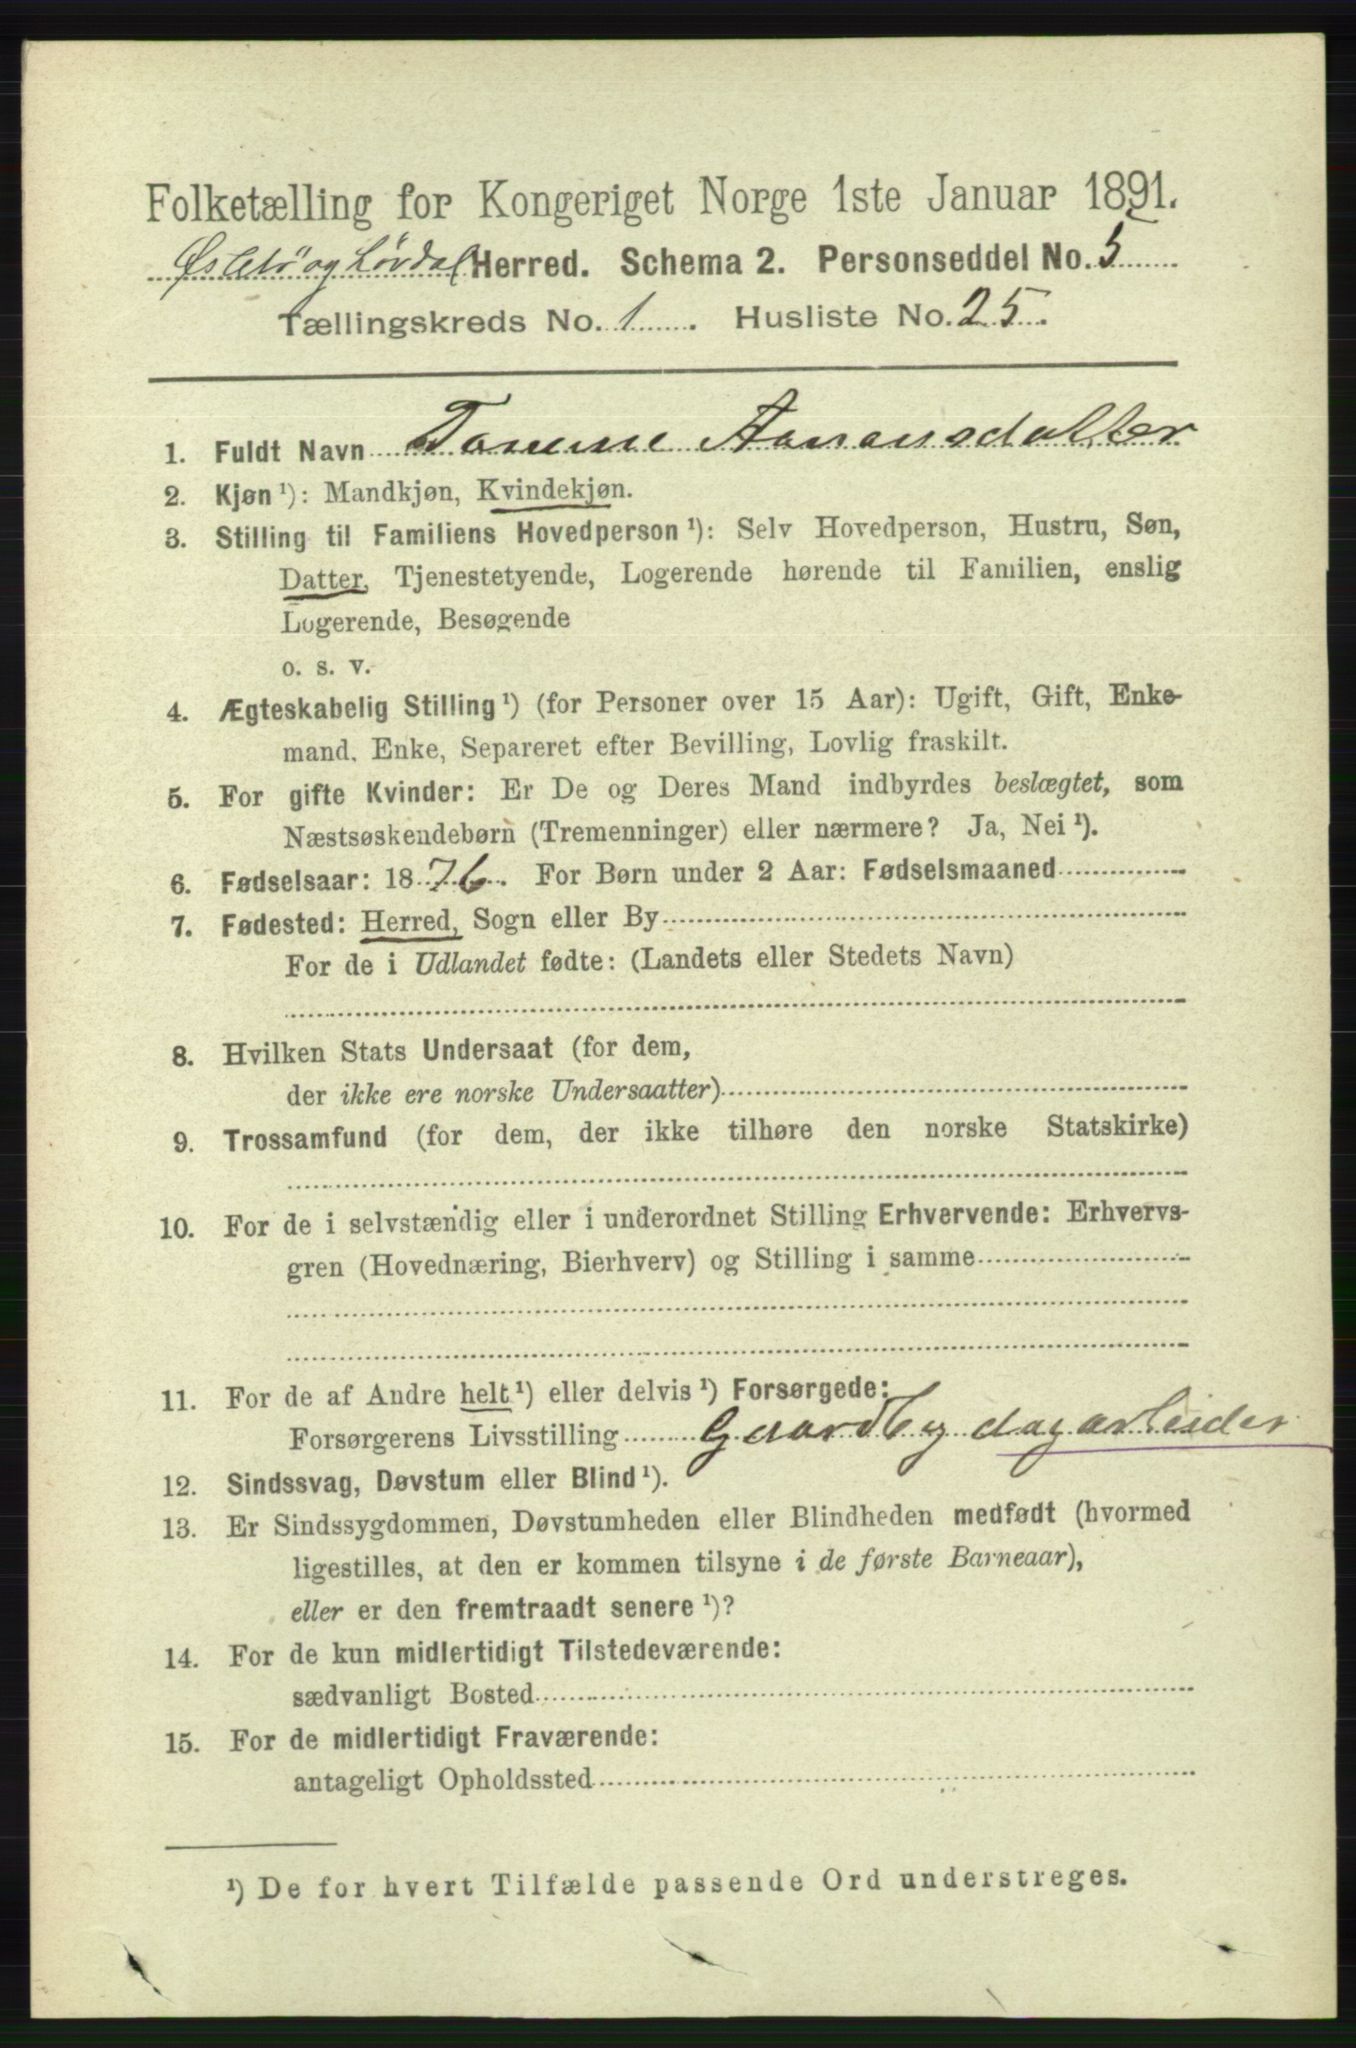 Folketælling for Kongeriget Norge 1ste Januar 1891.
Øslebø og Løvdal Herred. Schema 2. Personseddel No. 5
Tællingskreds No. 1. Husliste No. 25.
1. Fuldt Navn Tomine Aanonsdatter
2. Kjøn ¹): Mandkjøn, Kvindekjøn.
3. Stilling til Familiens Hovedperson ¹): Selv Hovedperson, Hustru, Søn,
Datter, Tjenestetyende, Logerende hørende til Familien, enslig
Logerende, Besøgende
o. s. v.
4. Ægteskabelig Stilling ¹) (for Personer over 15 Aar): Ugift, Gift, Enke-
mand, Enke, Separeret efter Bevilling, Lovlig fraskilt.
5. For gifte Kvinder: Er De og Deres Mand indbyrdes beslægtet, som
Næstsøskendebørn (Tremenninger) eller nærmere? Ja, Nei ¹).
6. Fødselsaar: 1876. For Børn under 2 Aar: Fødselsmaaned
7. Fødested: Herred, Sogn eller By
For de i Udlandet fødte: (Landets eller Stedets Navn)
8. Hvilken Stats Undersaat (for dem,
der ikke ere norske Undersaatter)
9. Trossamfund (for dem, der ikke tilhøre den norske Statskirke)
10. For de i selvstændig eller i underordnet Stilling Erhvervende: Erhvervs-
gren (Hovednæring, Bierhverv) og Stilling i samme
11. For de af Andre helt ¹) eller delvis ¹) Forsørgede:
Forsørgerens Livsstilling Gaardbr og dagarbeider
12. Sindssvag, Døvstum eller Blind ¹).
13. Er Sindssygdommen, Døvstumheden eller Blindheden medfødt (hvormed
ligestilles, at den er kommen tilsyne i de første Barneaar),
eller er den fremtraadt senere ¹)?
14. For de kun midlertidigt Tilstedeværende:
sædvanligt Bosted
15. For de midlertidigt Fraværende:
antageligt Opholdssted
¹) De for hvert Tilfælde passende Ord understreges.